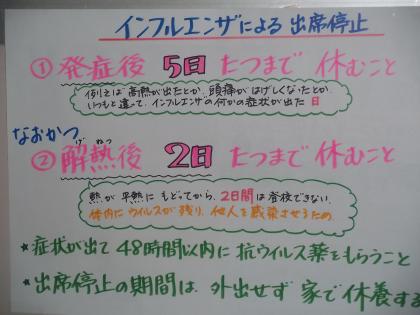 インフルエンザによる 出席停止
①発症後 5日 たつまで 休むこと
例えば 高熱が出たとか、頭痛がはげしくなったとか
いつもと違って、インフルエンザの何かの症状が出た 日
なおかつ
げ ねつ
②解熱後 2日 たつまで 休むこと
熱が 平熱に もどってから、2日間は登校できない。
体内にウイルスが残り、他人を感染させるため
★症状が出て 48時間以内に 抗ウイルス薬をもらうこと
★出席停止の期間は、外出せず 家で休養する